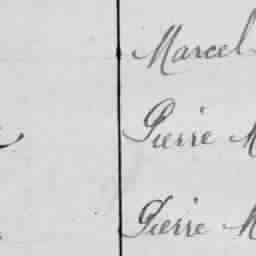 Marcel
Pierre M
Pierre M